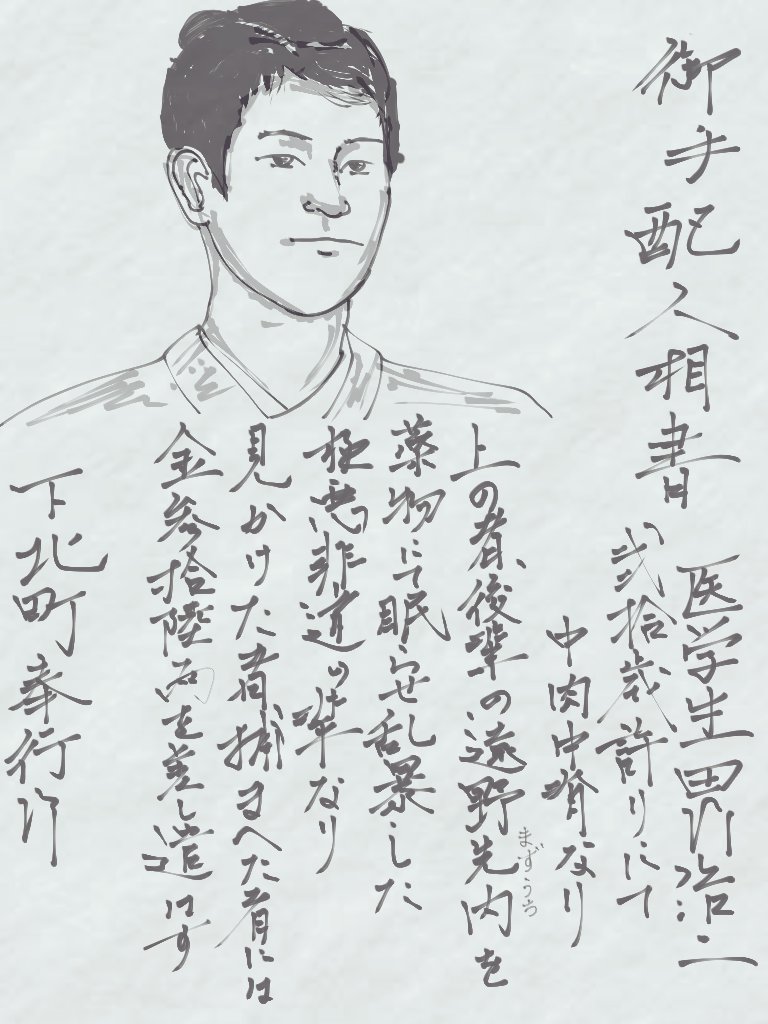 御手配人相書
医学生田所浩二
弐拾歳許りにて
中肉中背なり
上の者、後輩の遠野先内を
まずうち
薬物にて眠らせ乱暴した
極悪非道の輩なり
見かけた者、捕まへた者には
金参拾陸両を差し遣はす
下北町奉行所